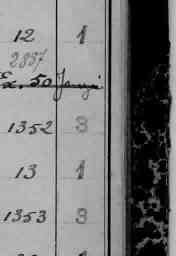 12 1
2857
Ex. 50
1352 3
13 1
1353 3